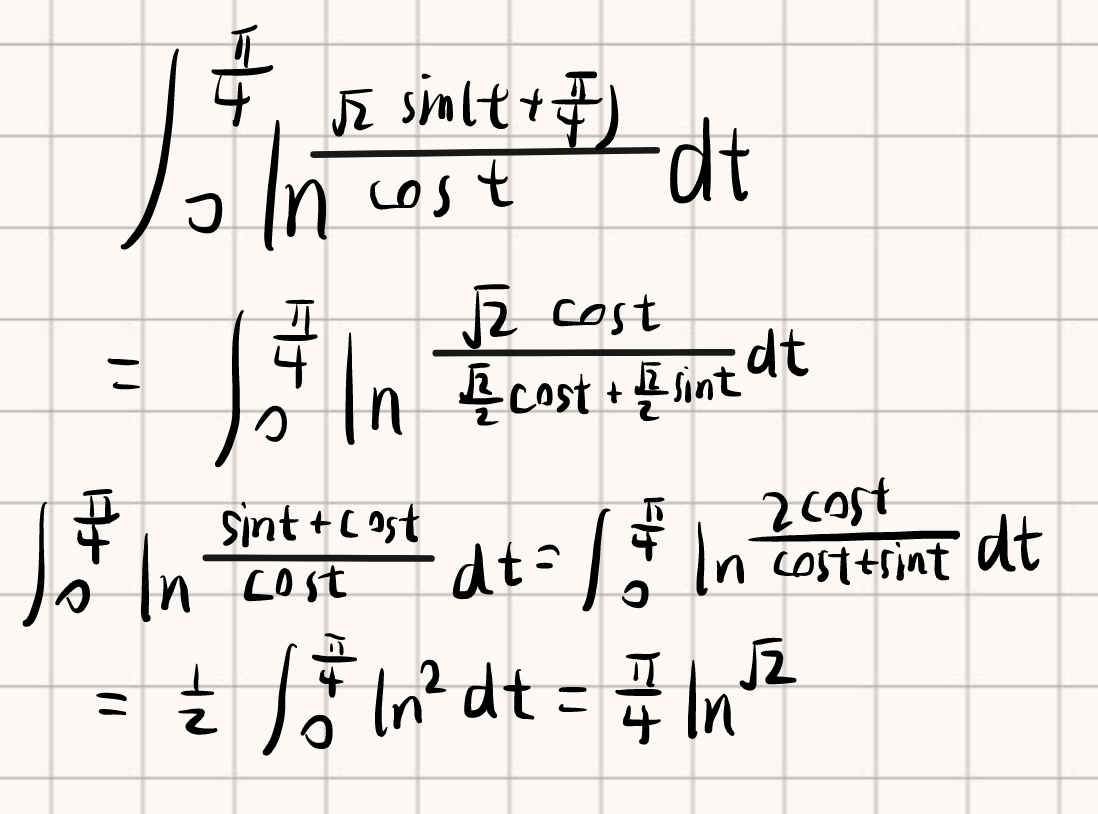 ∫₀^{π/4} ln (√2 sin(t + π/4))/(cos t) dt
= ∫₀^{π/4} ln (√2 cos t)/(√2/2 cos t + √2/2 sin t) dt
∫₀^{π/4} ln (sin t + cos t)/(cos t) dt = ∫₀^{π/4} ln (2 cos t)/(cos t + sin t) dt
= 1/2 ∫₀^{π/4} ln 2 dt = π/4 ln √2